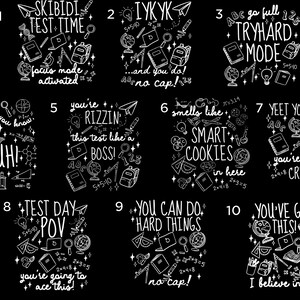 SKIBIDI
TEST TIME
focus mode
activated
2
IYKYK
...and you do,
no cap!
3
go full
TRYHARD
MODE
you know
UH!
5
you're
RIZZIN'
this test like a
BOSS!
6
smells like
SMART
COOKIES
in here
7
YEET YO
you're
CR
8
TEST DAY
POV
you're going to
ace this!
9
YOU CAN DO
HARD THINGS
no cap!
10
YOU'VE G
THIS!
I believe in